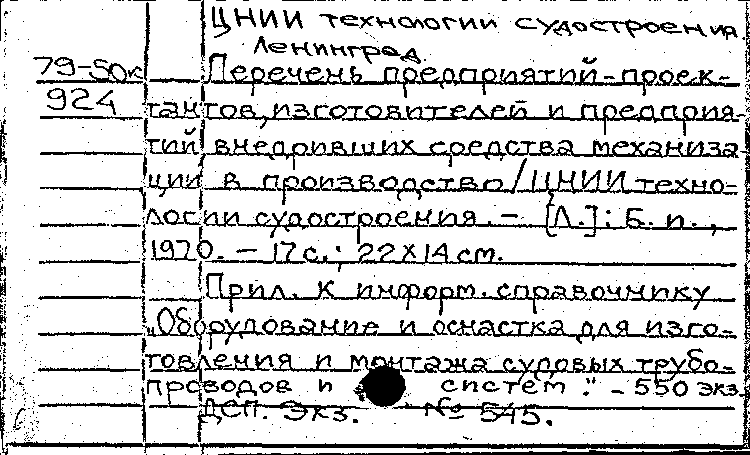 ЦНИИ технологии судостроения.
Ленинград.
79-50к Перечень предприятий-проек-
924 тантов, изготовителей и предприя-
тий внедривших средства механиза
ции в производство/ЦНИИ техно-
логии судостроения. - [Л.]: Б. и.,
1970. - 17 с.; 22х14 см.
Прил. к информ. справочнику
„Оборудование и оснастка для изго-
товления и монтажа судовых трубо-
проводов и систем". - 550 экз.
ДСП. Экз. № 545.